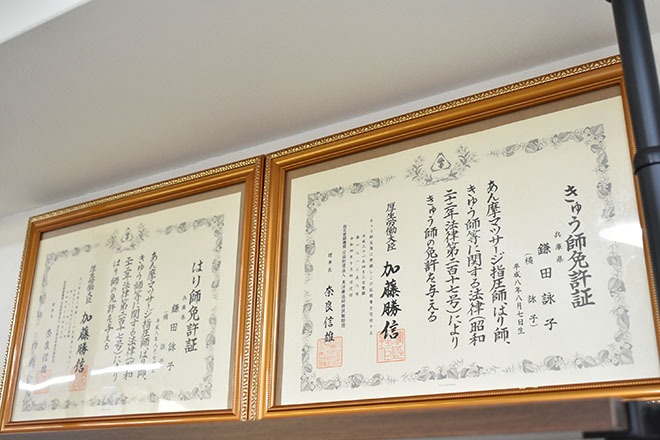 きゅう師免許証
兵庫県
鎌田詠子
(橘 詠子)
平成八年八月七日生
あん摩マツサージ指圧師、はり師、
きゆう師等に関する法律(昭和
二十二年法律第二百十七号)により
きゆう師の免許を与える
厚生労働大臣 加藤勝信
理事長 奈良信雄
はり師免許証
兵庫県
鎌田詠子
(橘 詠子)
あん摩マツサージ指圧師、はり師、
きゆう師等に関する法律(昭和
二十二年法律第二百十七号)により
はり師の免許を与える
厚生労働大臣 加藤勝信
奈良信雄